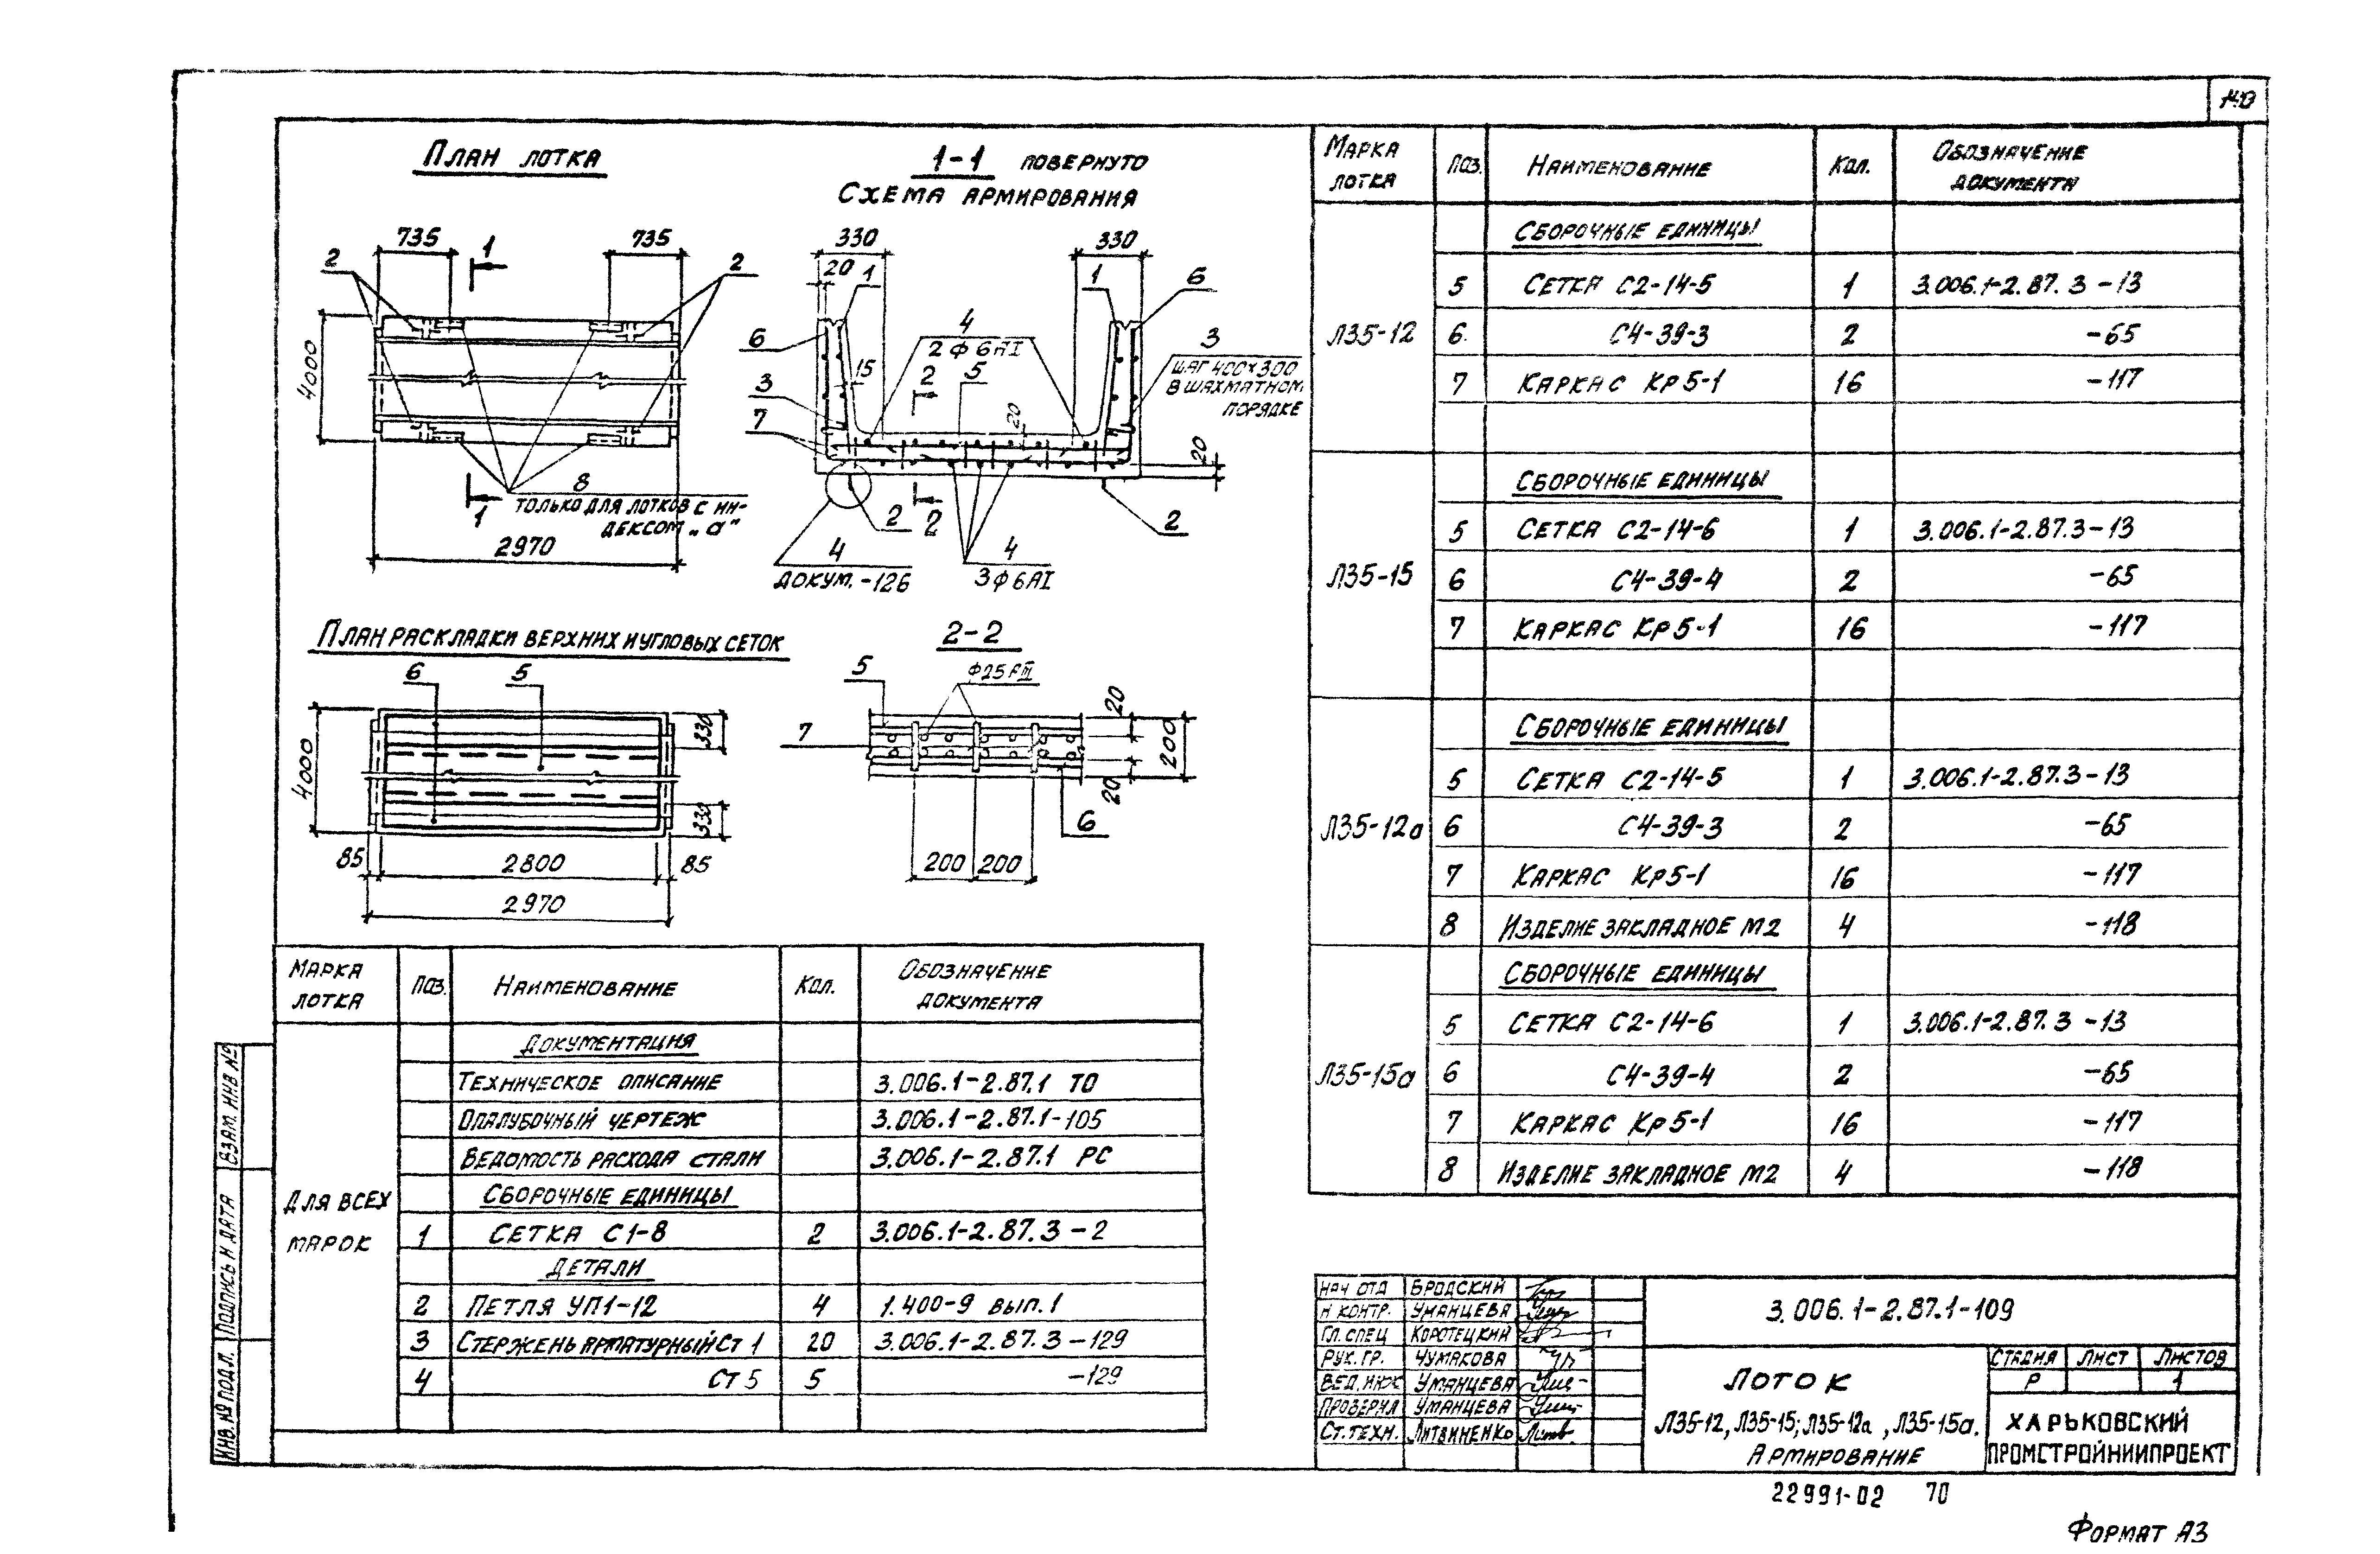 План лотка
1-1 повернуто
Схема армирования
735
1
735
2
2
4000
8
только для лотков с ин-
дексом „а"
1
2970
330
330
20
1
1
6
4
2ф6АI
6
3
шаг 400×300
в шахматном
порядке
15
2
5
3
7
20
20
2
2
2
4
докум. -126
4
3ф6АI
План раскладки верхних и угловых сеток
6
5
4000
330
330
85
2800
85
2970
2-2
5
ф25АIII
7
20
200
20
6
200
200
Марка лотка Поз. Наименование Кол. Обозначение документа
Для всех марок
Документация
Техническое описание 3.006.1-2.87.1 ТО
Опалубочный чертеж 3.006.1-2.87.1-105
Ведомость расхода стали 3.006.1-2.87.1 РС
Сборочные единицы
1 Сетка С1-8 2 3.006.1-2.87.3-2
Детали
2 Петля УП1-12 4 1.400-9 вып.1
3 Стержень арматурный Ст 1 20 3.006.1-2.87.3-129
4 Ст 5 5 -129
Марка лотка Поз. Наименование Кол. Обозначение документа
Л35-12
Сборочные единицы
5 Сетка С2-14-5 1 3.006.1-2.87.3-13
6 С4-39-3 2 -65
7 Каркас Кр5-1 16 -117
Л35-15
Сборочные единицы
5 Сетка С2-14-6 1 3.006.1-2.87.3-13
6 С4-39-4 2 -65
7 Каркас Кр5-1 16 -117
Л35-12а
Сборочные единицы
5 Сетка С2-14-5 1 3.006.1-2.87.3-13
6 С4-39-3 2 -65
7 Каркас Кр5-1 16 -117
8 Изделие закладное М2 4 -118
Л35-15а
Сборочные единицы
5 Сетка С2-14-6 1 3.006.1-2.87.3-13
6 С4-39-4 2 -65
7 Каркас Кр5-1 16 -117
8 Изделие закладное М2 4 -118
Взам. инв №
Подпись и дата
Инв. № подл.
Нач отд Бродский
Н контр. Уманцева
Гл. спец Коротецкий
Рук. гр. Чумакова
Вед. инж Уманцева
Проверил Уманцева
Ст. техн. Литвиненко
3.006.1-2.87.1-109
Лоток
Л35-12, Л35-15; Л35-12а, Л35-15а.
Армирование
Стадия Лист Листов
Р 1
Харьковский
Промстройниипроект
22991-02 70
Формат А3